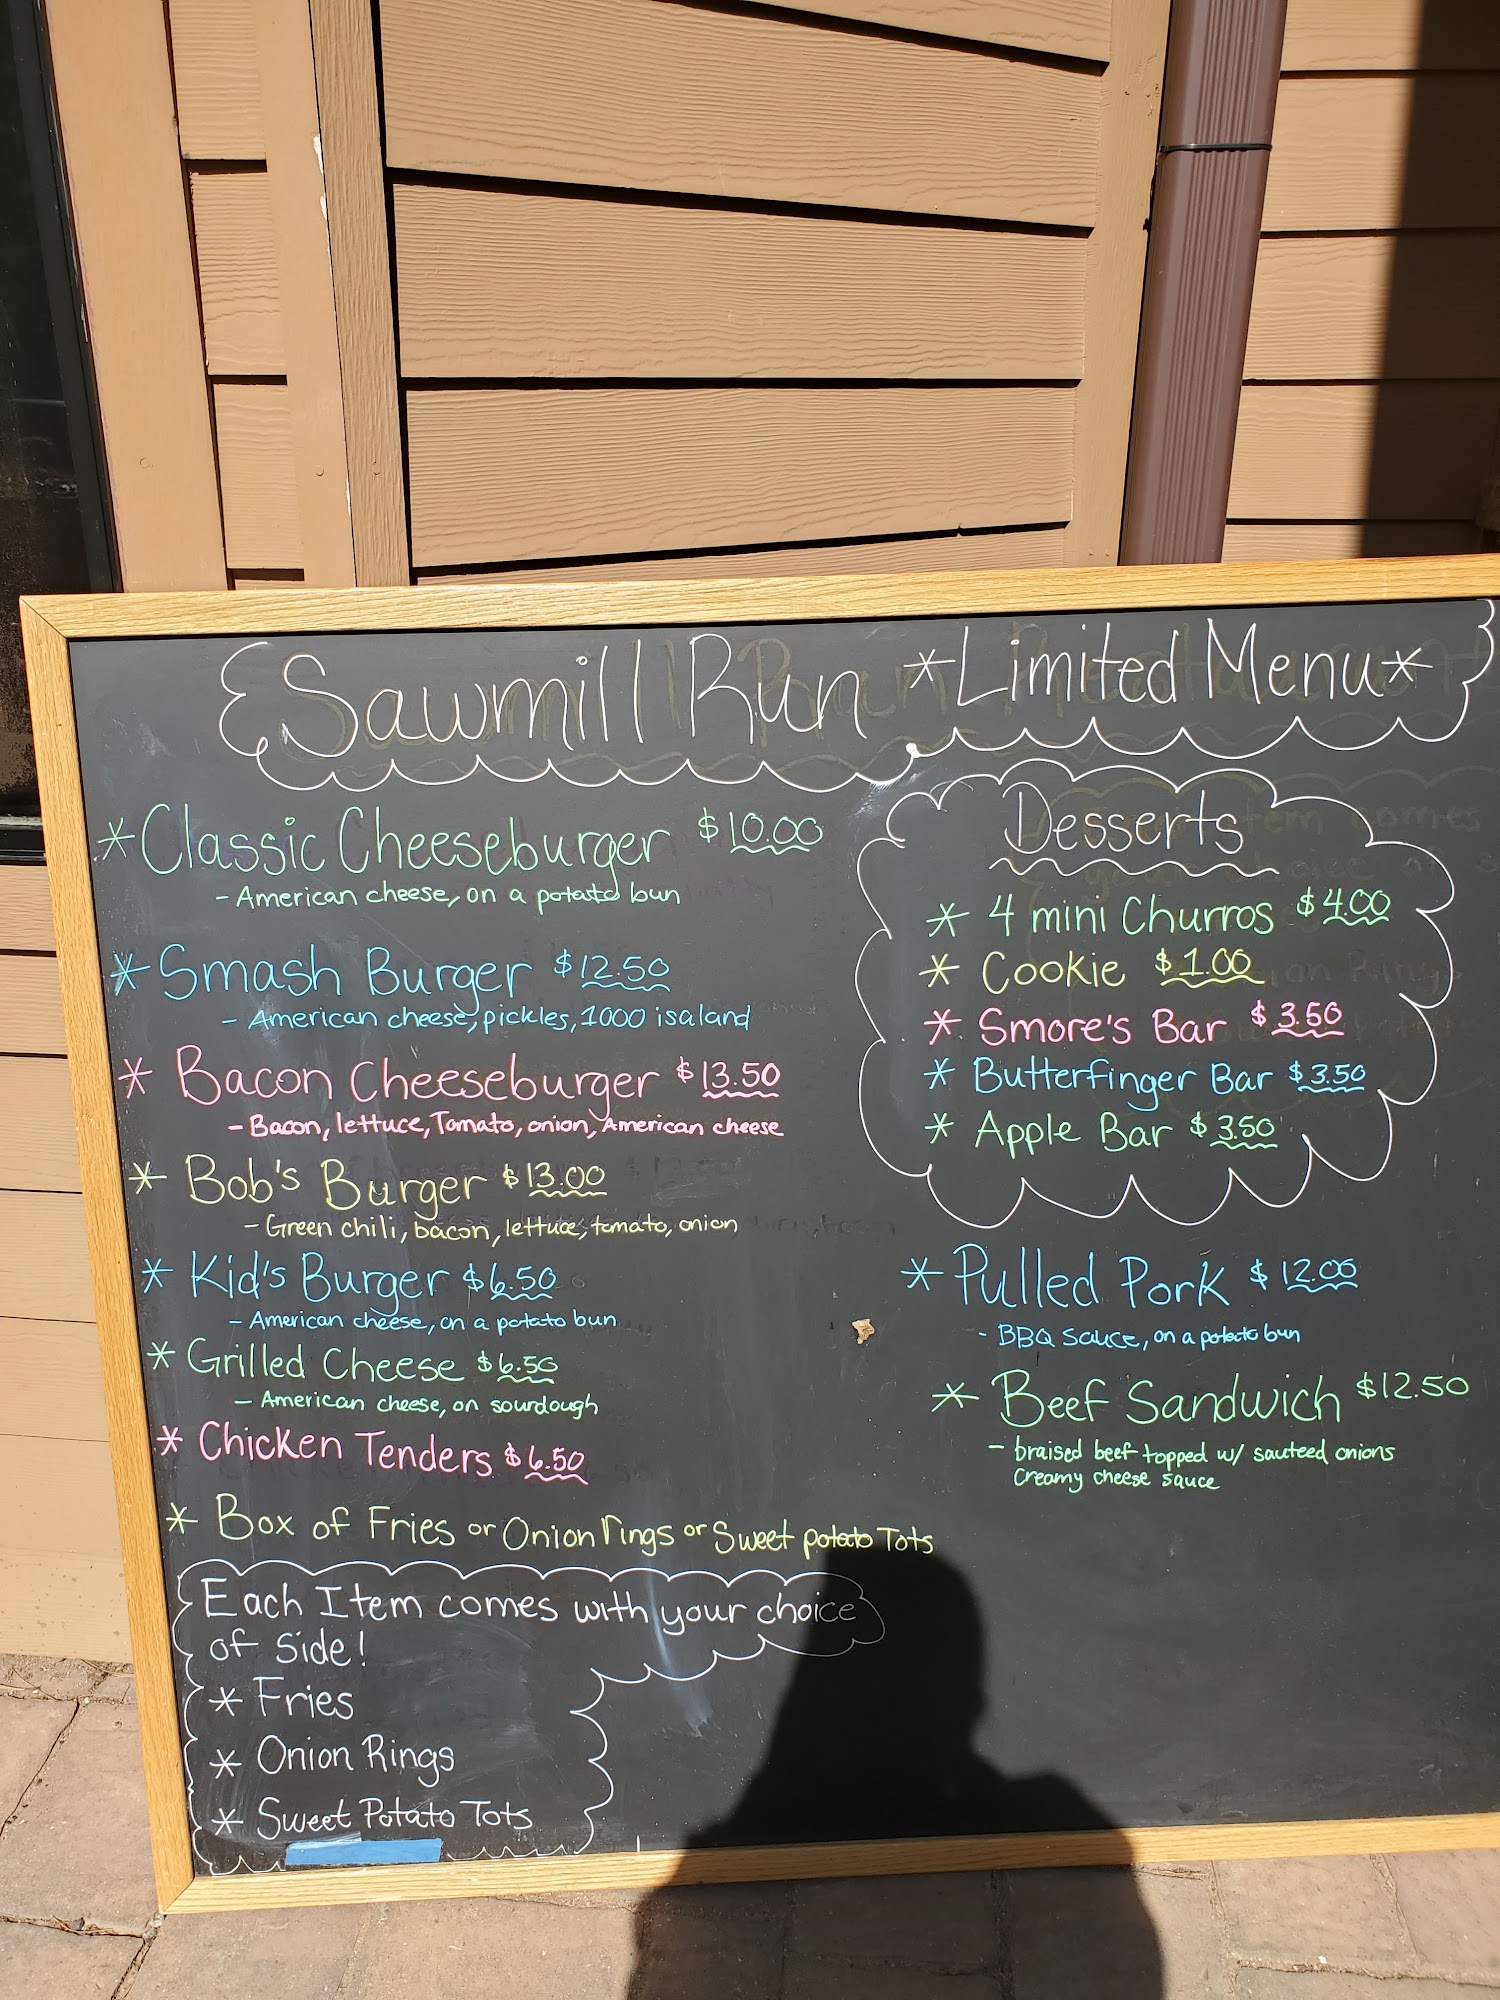 Sawmill Run *Limited Menu*
* Classic Cheeseburger $10.00
- American cheese, on a potato bun
* Smash Burger $12.50
- American cheese, pickles, 1000 isaland
* Bacon Cheeseburger $13.50
- Bacon, lettuce, Tomato, onion, American cheese
* Bob's Burger $13.00
- Green chili, bacon, lettuce, tomato, onion
* Kid's Burger $6.50
- American cheese, on a potato bun
* Grilled Cheese $6.50
- American cheese, on sourdough
* Chicken Tenders $6.50
* Box of Fries or Onion rings or Sweet potato Tots
Each Item comes with your choice
of side!
* Fries
* Onion Rings
* Sweet Potato Tots
Desserts
* 4 mini Churros $4.00
* Cookie $1.00
* Smore's Bar $3.50
* Butterfinger Bar $3.50
* Apple Bar $3.50
* Pulled Pork $12.00
- BBQ sauce, on a potato bun
* Beef Sandwich $12.50
- braised beef topped w/ sauteed onions
Creamy cheese sauce